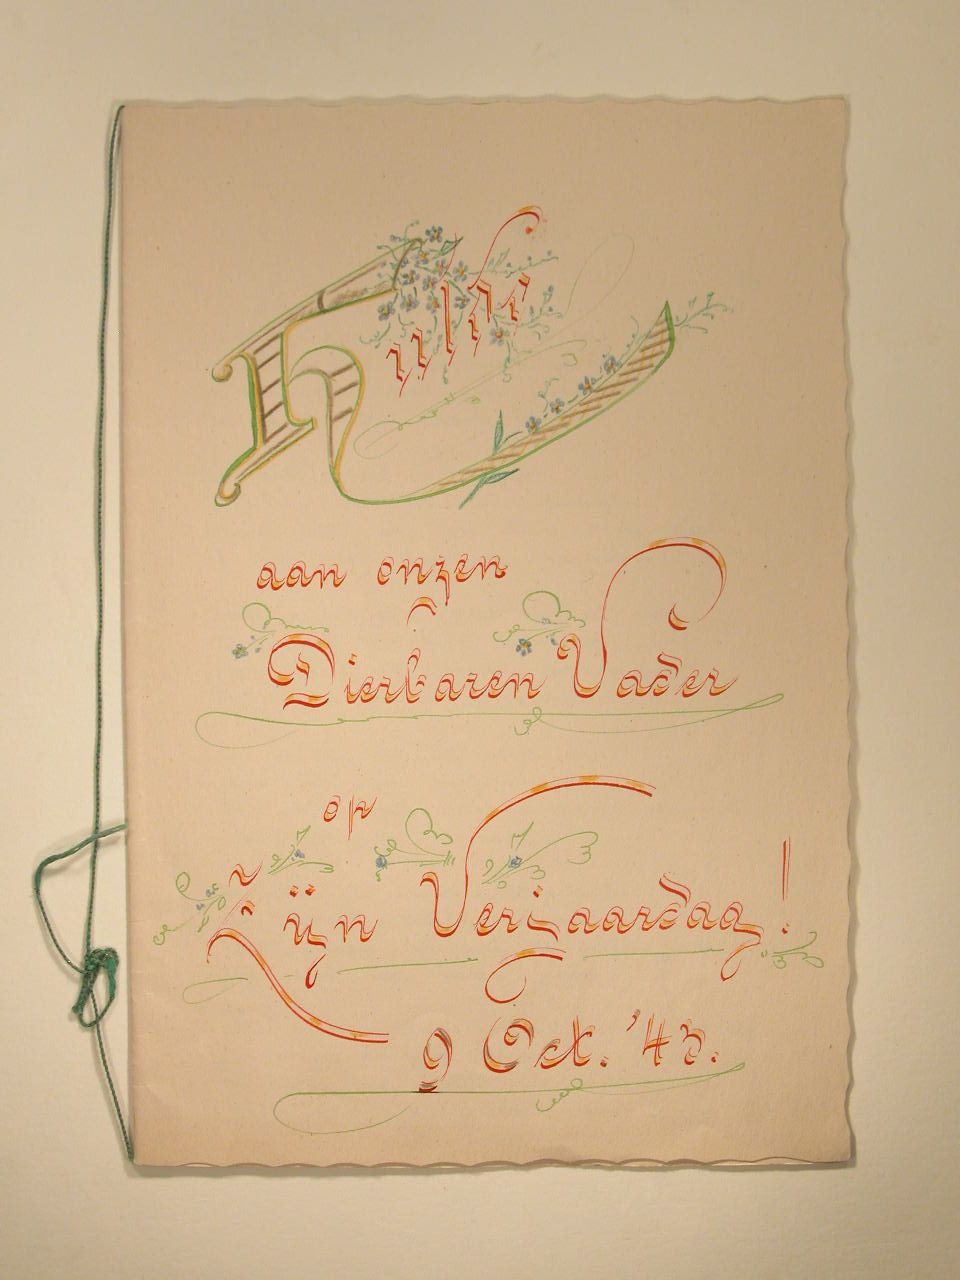 Hulde
aan onzen
Dierbaren Vader
op
Zijn Verjaardag!
9 Oct. '43.